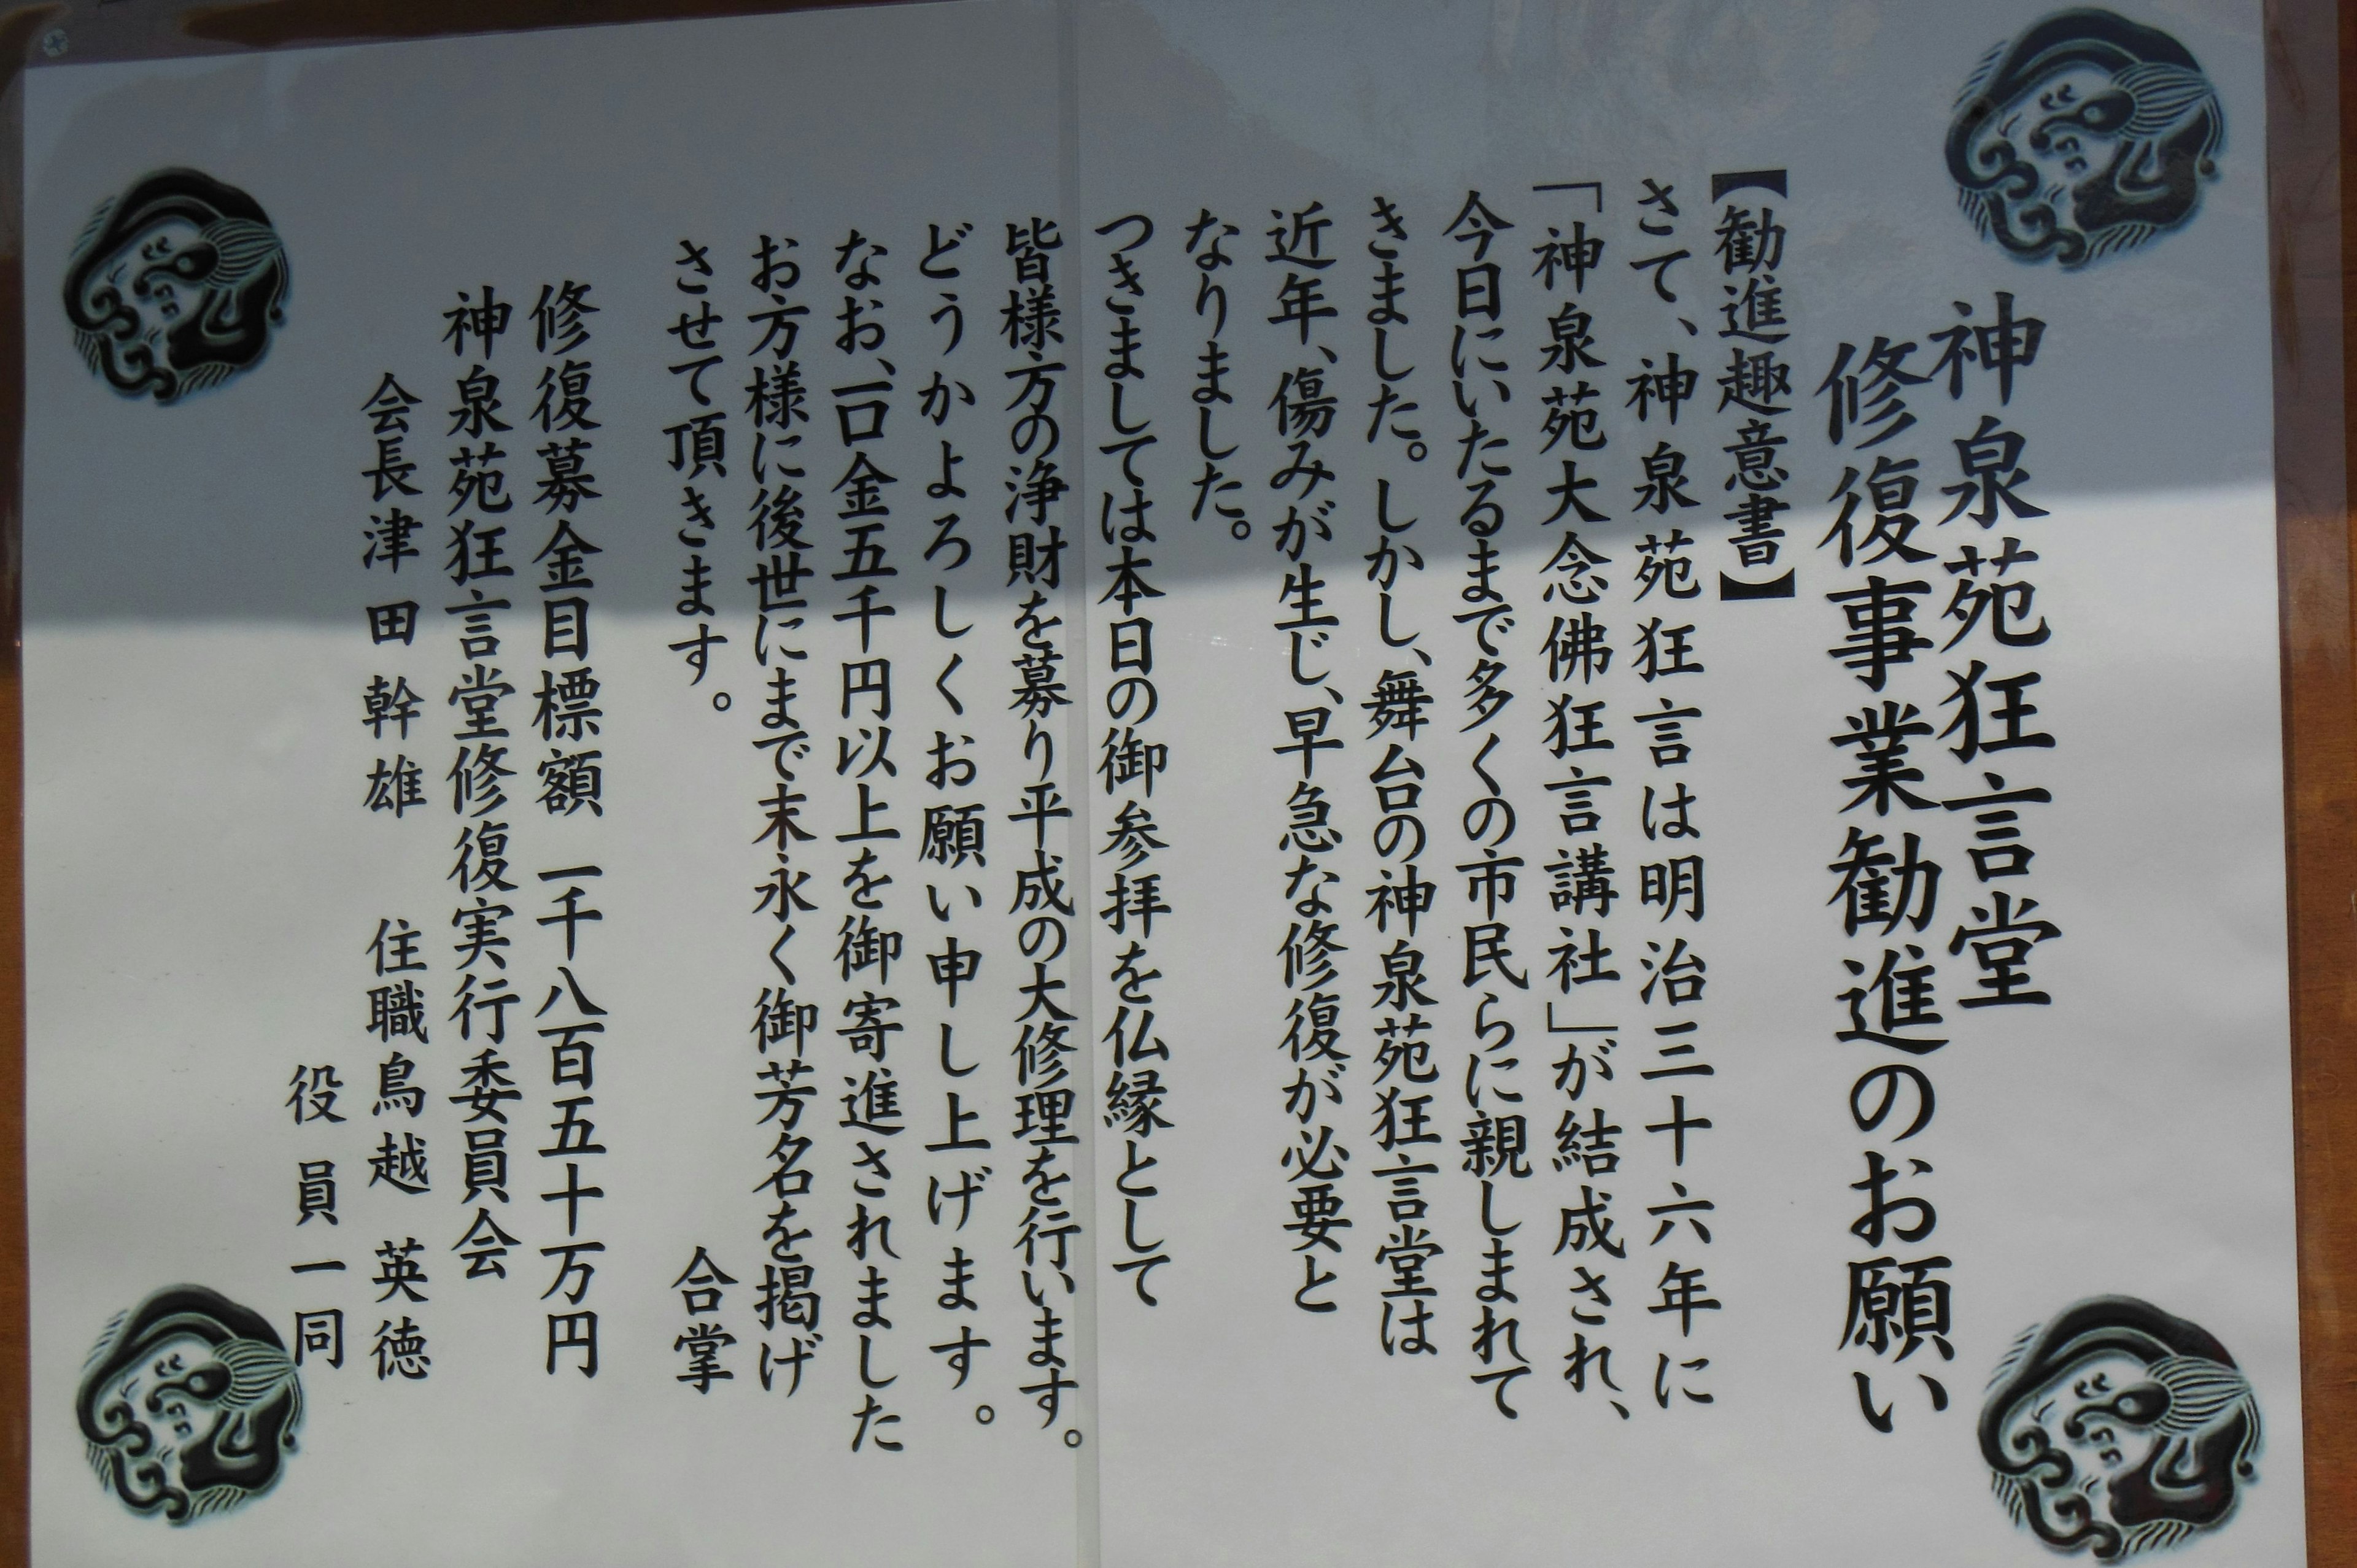 神泉苑狂言堂
修復事業勧進のお願い
【勧進趣意書】
さて、神泉苑狂言は明治三十六年に
「神泉苑大念佛狂言講社」が結成され、
今日にいたるまで多くの市民らに親しまれて
きました。しかし、舞台の神泉苑狂言堂は
近年、傷みが生じ、早急な修復が必要と
なりました。
つきましては本日の御参拝を仏縁として
皆様方の浄財を募り平成の大修理を行います。
どうかよろしくお願い申し上げます。
なお、一口金五千円以上を御寄進されました
お方様に後世にまで末永く御芳名を掲げ
させて頂きます。 合掌
修復募金目標額 一千八百五十万円
神泉苑狂言堂修復実行委員会
会長津田幹雄 住職鳥越英徳
役員一同